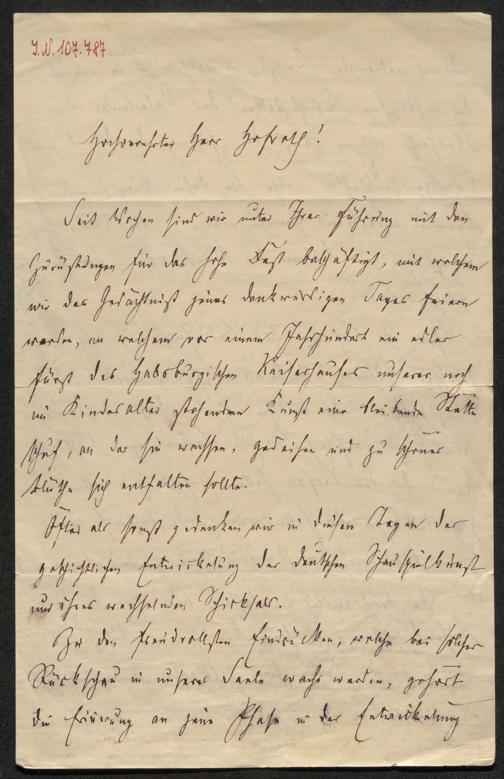 J.N. 107.787
Hochverehrter Herr Hofrath!
Seit Wochen sind wir unter Ihrer Führung mit den
Zurüstungen für das hohe Fest beschäftigt, mit welchem
wir das Gedächtniß jenes denkwürdigen Tages feiern
werden, an welchem vor einem Jahrhundert ein edler
Fürst des Habsburgischen Kaiserhauses unserer noch
im Kindesalter stehenden Kunst eine bleibende Stätte
schuf, an der sie wachsen, gedeihen und zu schöner
Blüthe sich entfalten sollte.
Öfter als sonst gedenken wir in diesen Tagen der
geschichtlichen Entwickelung der deutschen Schauspielkunst
und ihres wechselnden Schicksals.
Zu den freudvollsten Eindrücken, welche bei solcher
Rückschau in unserer Seele wach werden, gehört
die Erinnerung an jene Phase in der Entwickelung